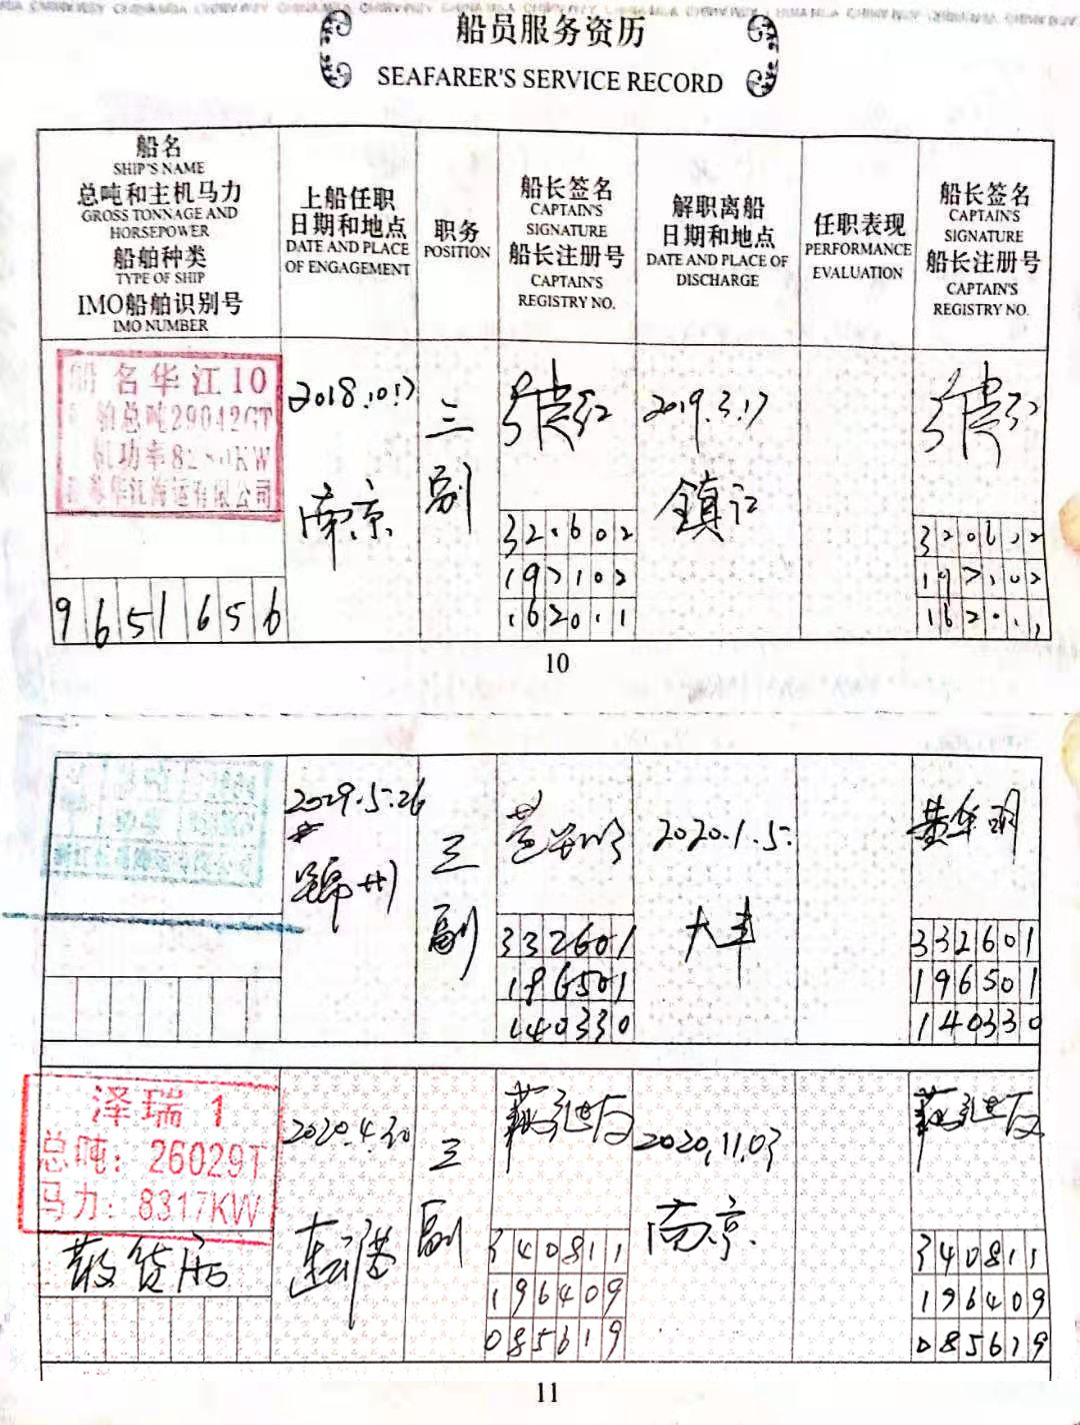 船员服务资历
SEAFARER'S SERVICE RECORD
船名
SHIP'S NAME
总吨和主机马力
GROSS TONNAGE AND
HORSEPOWER
船舶种类
TYPE OF SHIP
IMO船舶识别号
IMO NUMBER
上船任职
日期和地点
DATE AND PLACE
OF ENGAGEMENT
职务
POSITION
船长签名
CAPTAIN'S
SIGNATURE
船长注册号
CAPTAIN'S
REGISTRY NO.
解职离船
日期和地点
DATE AND PLACE OF
DISCHARGE
任职表现
PERFORMANCE
EVALUATION
船长签名
CAPTAIN'S
SIGNATURE
船长注册号
CAPTAIN'S
REGISTRY NO.
船名华江10
舶总吨29042GT
机功率KW
苏华江海运有限公司
9651656
2018.10.17
南京
三
副
2019.3.17
鎮江
10
锦州
三
副
332601
196501
140330
2020.1.5.
大丰
黄华明
332601
196501
140330
泽瑞 1
总吨：26029T
马力：8317KW
散货船
2020.4.30
连云港
三
副
340811
196409
085619
2020.11.03
南京.
340811
196409
085619
11